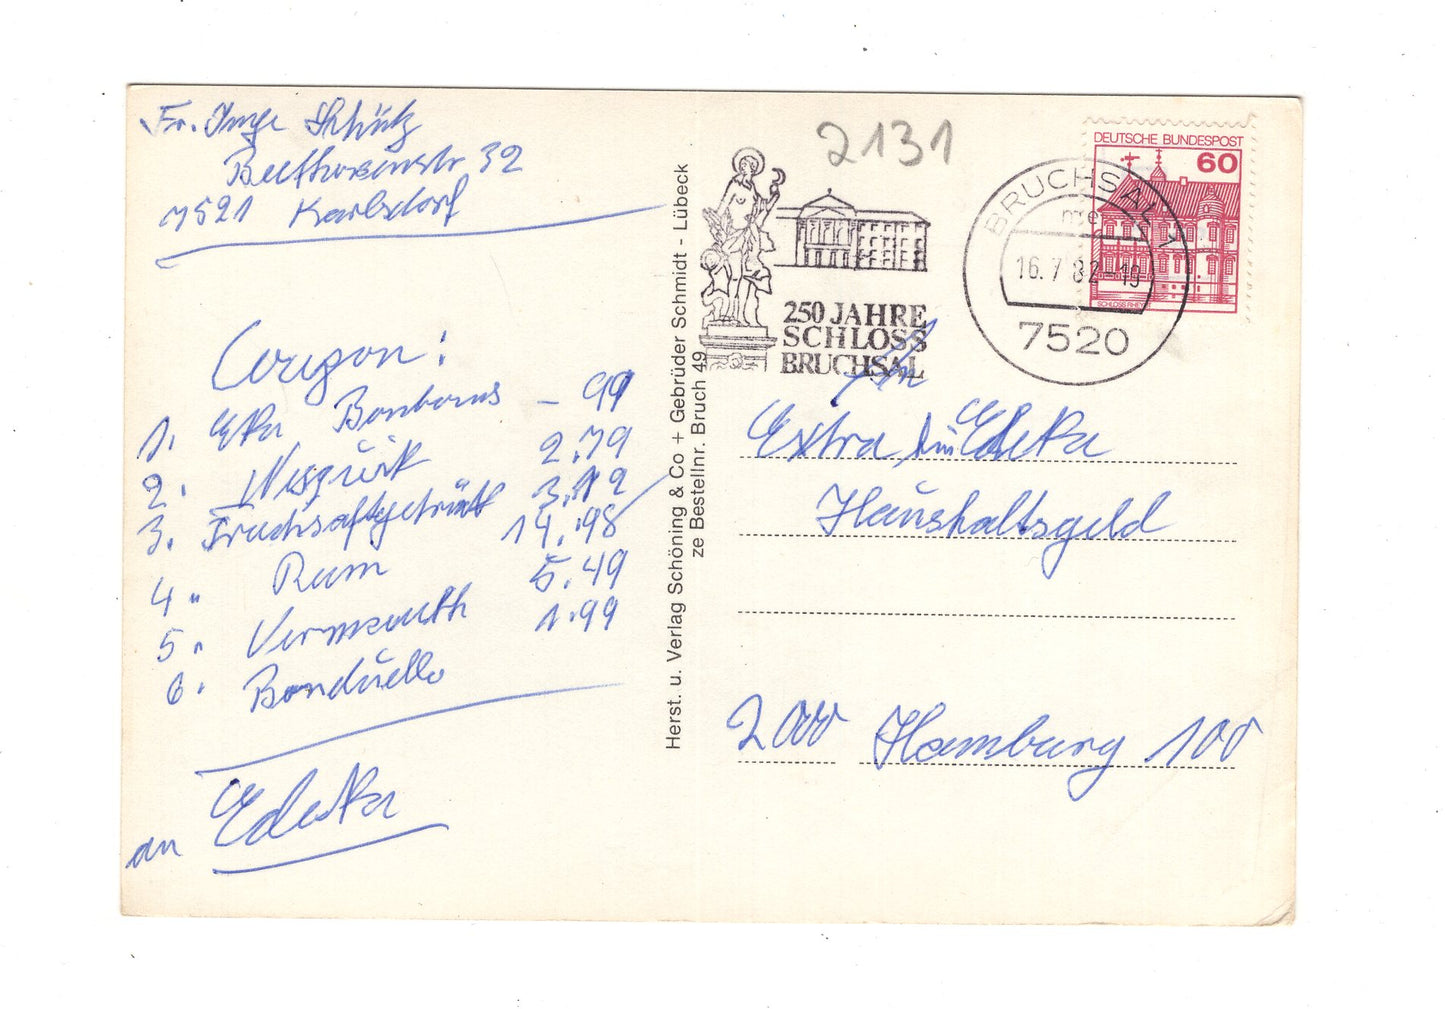 Fr. Inge Schütz
Beethovenstr 32
7521 Karlsdorf
Coupon:
1. Eka Bonbons - 99
2. Nesquik 2.79
3. Fruchsaftgetränk 3.12
4. Rum 14.98
5. Vermouth 5.49
6. Bonduelle 1.99
an Edeka
Herst. u. Verlag Schöning & Co + Gebrüder Schmidt - Lübeck
ze Bestellnr. Bruch 49
2131
250 JAHRE
SCHLOSS
BRUCHSAL
BRUCHSAL 1
16.7.82-19
7520
DEUTSCHE BUNDESPOST
60
An
Extra im Edeka
Haushaltsgeld
2000 Hamburg 100